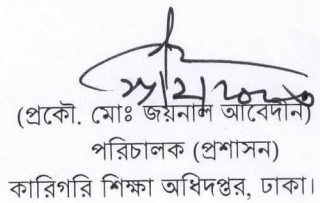 (প্রকৌ. মোঃ জয়নাল আবেদীন)
পরিচালক (প্রশাসন)
কারিগরি শিক্ষা অধিদপ্তর, ঢাকা।